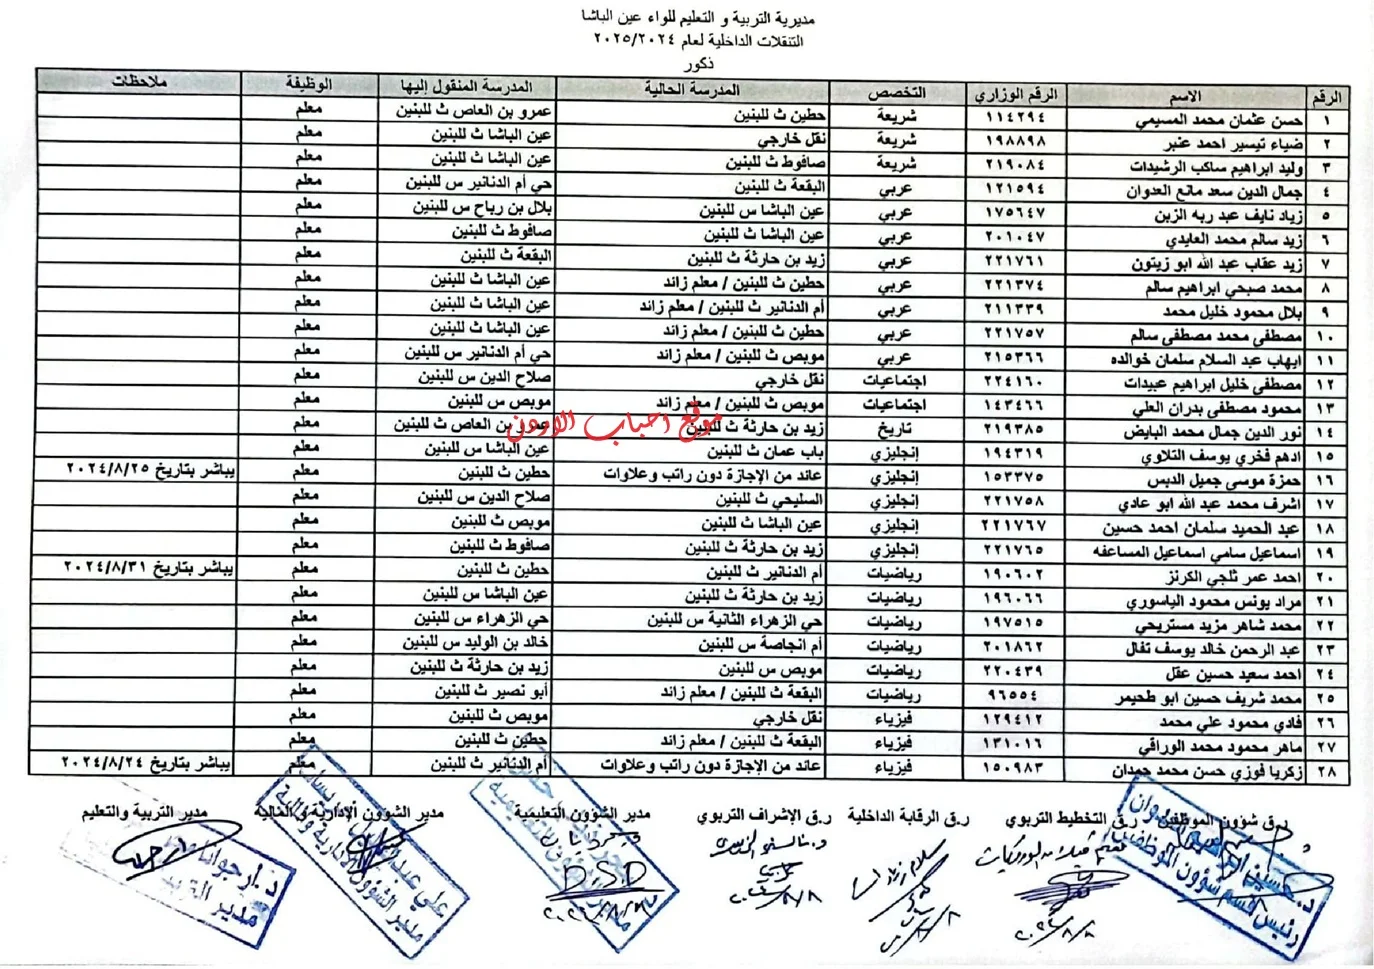 مديرية التربية و التعليم للواء عين الباشا
التنقلات الداخلية لعام ٢٠٢٥/٢٠٢٤
ذكور
الرقم الاسم الرقم الوزاري التخصص المدرسة الحالية المدرسة المنقول إليها الوظيفة ملاحظات
١ حسن عثمان محمد المسيمي ١١٤٢٩٤ شريعة حطين ث للبنين عمرو بن العاص ث للبنين معلم
٢ ضياء تيسير احمد عنبر ١٩٨٨٩٨ شريعة نقل خارجي عين الباشا ث للبنين معلم
٣ وليد ابراهيم ساكب الرشيدات ٢١٩٠٨٤ شريعة صافوط ث للبنين عين الباشا ث للبنين معلم
٤ جمال الدين سعد مانع العدوان ١٢١٥٩٤ عربي البقعة ث للبنين حي أم الدنانير س للبنين معلم
٥ زياد نايف عبد ربه الزبن ١٧٥٦٤٧ عربي عين الباشا س للبنين بلال بن رباح س للبنين معلم
٦ زيد سالم محمد العايدي ٢٠١٠٤٧ عربي عين الباشا ث للبنين صافوط ث للبنين معلم
٧ زيد عقاب عبد الله ابو زيتون ٢٢١٧٦١ عربي زيد بن حارثة ث للبنين البقعة ث للبنين معلم
٨ محمد صبحي ابراهيم سالم ٢٢١٣٧٤ عربي حطين ث للبنين / معلم زائد عين الباشا ث للبنين معلم
٩ بلال محمود خليل محمد ٢١١٣٣٩ عربي أم الدنانير ث للبنين / معلم زائد عين الباشا ث للبنين معلم
١٠ مصطفى محمد مصطفى سالم ٢٢١٧٥٧ عربي حطين ث للبنين / معلم زائد عين الباشا ث للبنين معلم
١١ ايهاب عبد السلام سلمان خوالده ٢١٥٣٦٦ عربي موبص ث للبنين / معلم زائد حي أم الدنانير س للبنين معلم
١٢ مصطفى خليل ابراهيم عبيدات ٢٢٤١٦٠ اجتماعيات نقل خارجي صلاح الدين س للبنين معلم
١٣ محمود مصطفى بدران العلي ١٤٣٤٦٦ اجتماعيات موبص ث للبنين / معلم زائد موبص س للبنين معلم
١٤ نور الدين جمال محمد البايض ٢١٩٣٨٥ تاريخ زيد بن حارثة ث للبنين عمرو بن العاص ث للبنين معلم
موقع احباب الاردن
١٥ ادهم فخري يوسف التلاوي ١٩٤٣١٩ إنجليزي باب عمان ث للبنين عين الباشا س للبنين معلم
١٦ حمزة موسى جميل الدبس ١٥٣٣٧٥ إنجليزي عائد من الإجازة دون راتب وعلاوات حطين ث للبنين معلم يباشر بتاريخ ٢٠٢٤/٨/٢٥
١٧ اشرف محمد عبد الله ابو عادي ٢٢١٧٥٨ إنجليزي السليحي ث للبنين صلاح الدين س للبنين معلم
١٨ عبد الحميد سلمان احمد حسين ٢٢١٧٦٧ إنجليزي عين الباشا ث للبنين موبص ث للبنين معلم
١٩ اسماعيل سامي اسماعيل المساعفه ٢٢١٧٦٥ إنجليزي زيد بن حارثة ث للبنين صافوط ث للبنين معلم
٢٠ احمد عمر ثلجي الكرنز ١٩٠٦٠٢ رياضيات أم الدنانير ث للبنين حطين ث للبنين معلم يباشر بتاريخ ٢٠٢٤/٨/٣١
٢١ مراد يونس محمود الياسوري ١٩٦٠٦٦ رياضيات زيد بن حارثة ث للبنين عين الباشا س للبنين معلم
٢٢ محمد شاهر مزيد مستريحي ١٩٧٥١٥ رياضيات حي الزهراء الثانية س للبنين حي الزهراء س للبنين معلم
٢٣ عبد الرحمن خالد يوسف نفال ٢٠١٨٦٢ رياضيات أم انجاصة س للبنين خالد بن الوليد س للبنين معلم
٢٤ احمد سعيد حسين عقل ٢٢٠٤٣٩ رياضيات موبص س للبنين زيد بن حارثة ث للبنين معلم
٢٥ محمد شريف حسين ابو طحيمر ٩٦٥٥٤ رياضيات البقعة ث للبنين / معلم زائد أبو نصير ث للبنين معلم
٢٦ فادي محمود علي محمد ١٢٩٤١٢ فيزياء نقل خارجي موبص ث للبنين معلم
٢٧ ماهر محمود محمد الوراقي ١٣١٠١٦ فيزياء البقعة ث للبنين / معلم زائد حطين ث للبنين معلم
٢٨ زكريا فوزي حسن محمد حمدان ١٥٠٩٨٣ فيزياء عائد من الإجازة دون راتب وعلاوات أم الدنانير ث للبنين معلم يباشر بتاريخ ٢٠٢٤/٨/٢٤
ر.ق شؤون الموظفين ر.ق التخطيط التربوي ر.ق الرقابة الداخلية ر.ق الإشراف التربوي مدير الشؤون التعليمية مدير الشؤون الإدارية و المالية مدير التربية والتعليم
رئيس قسم شؤون الموظفين